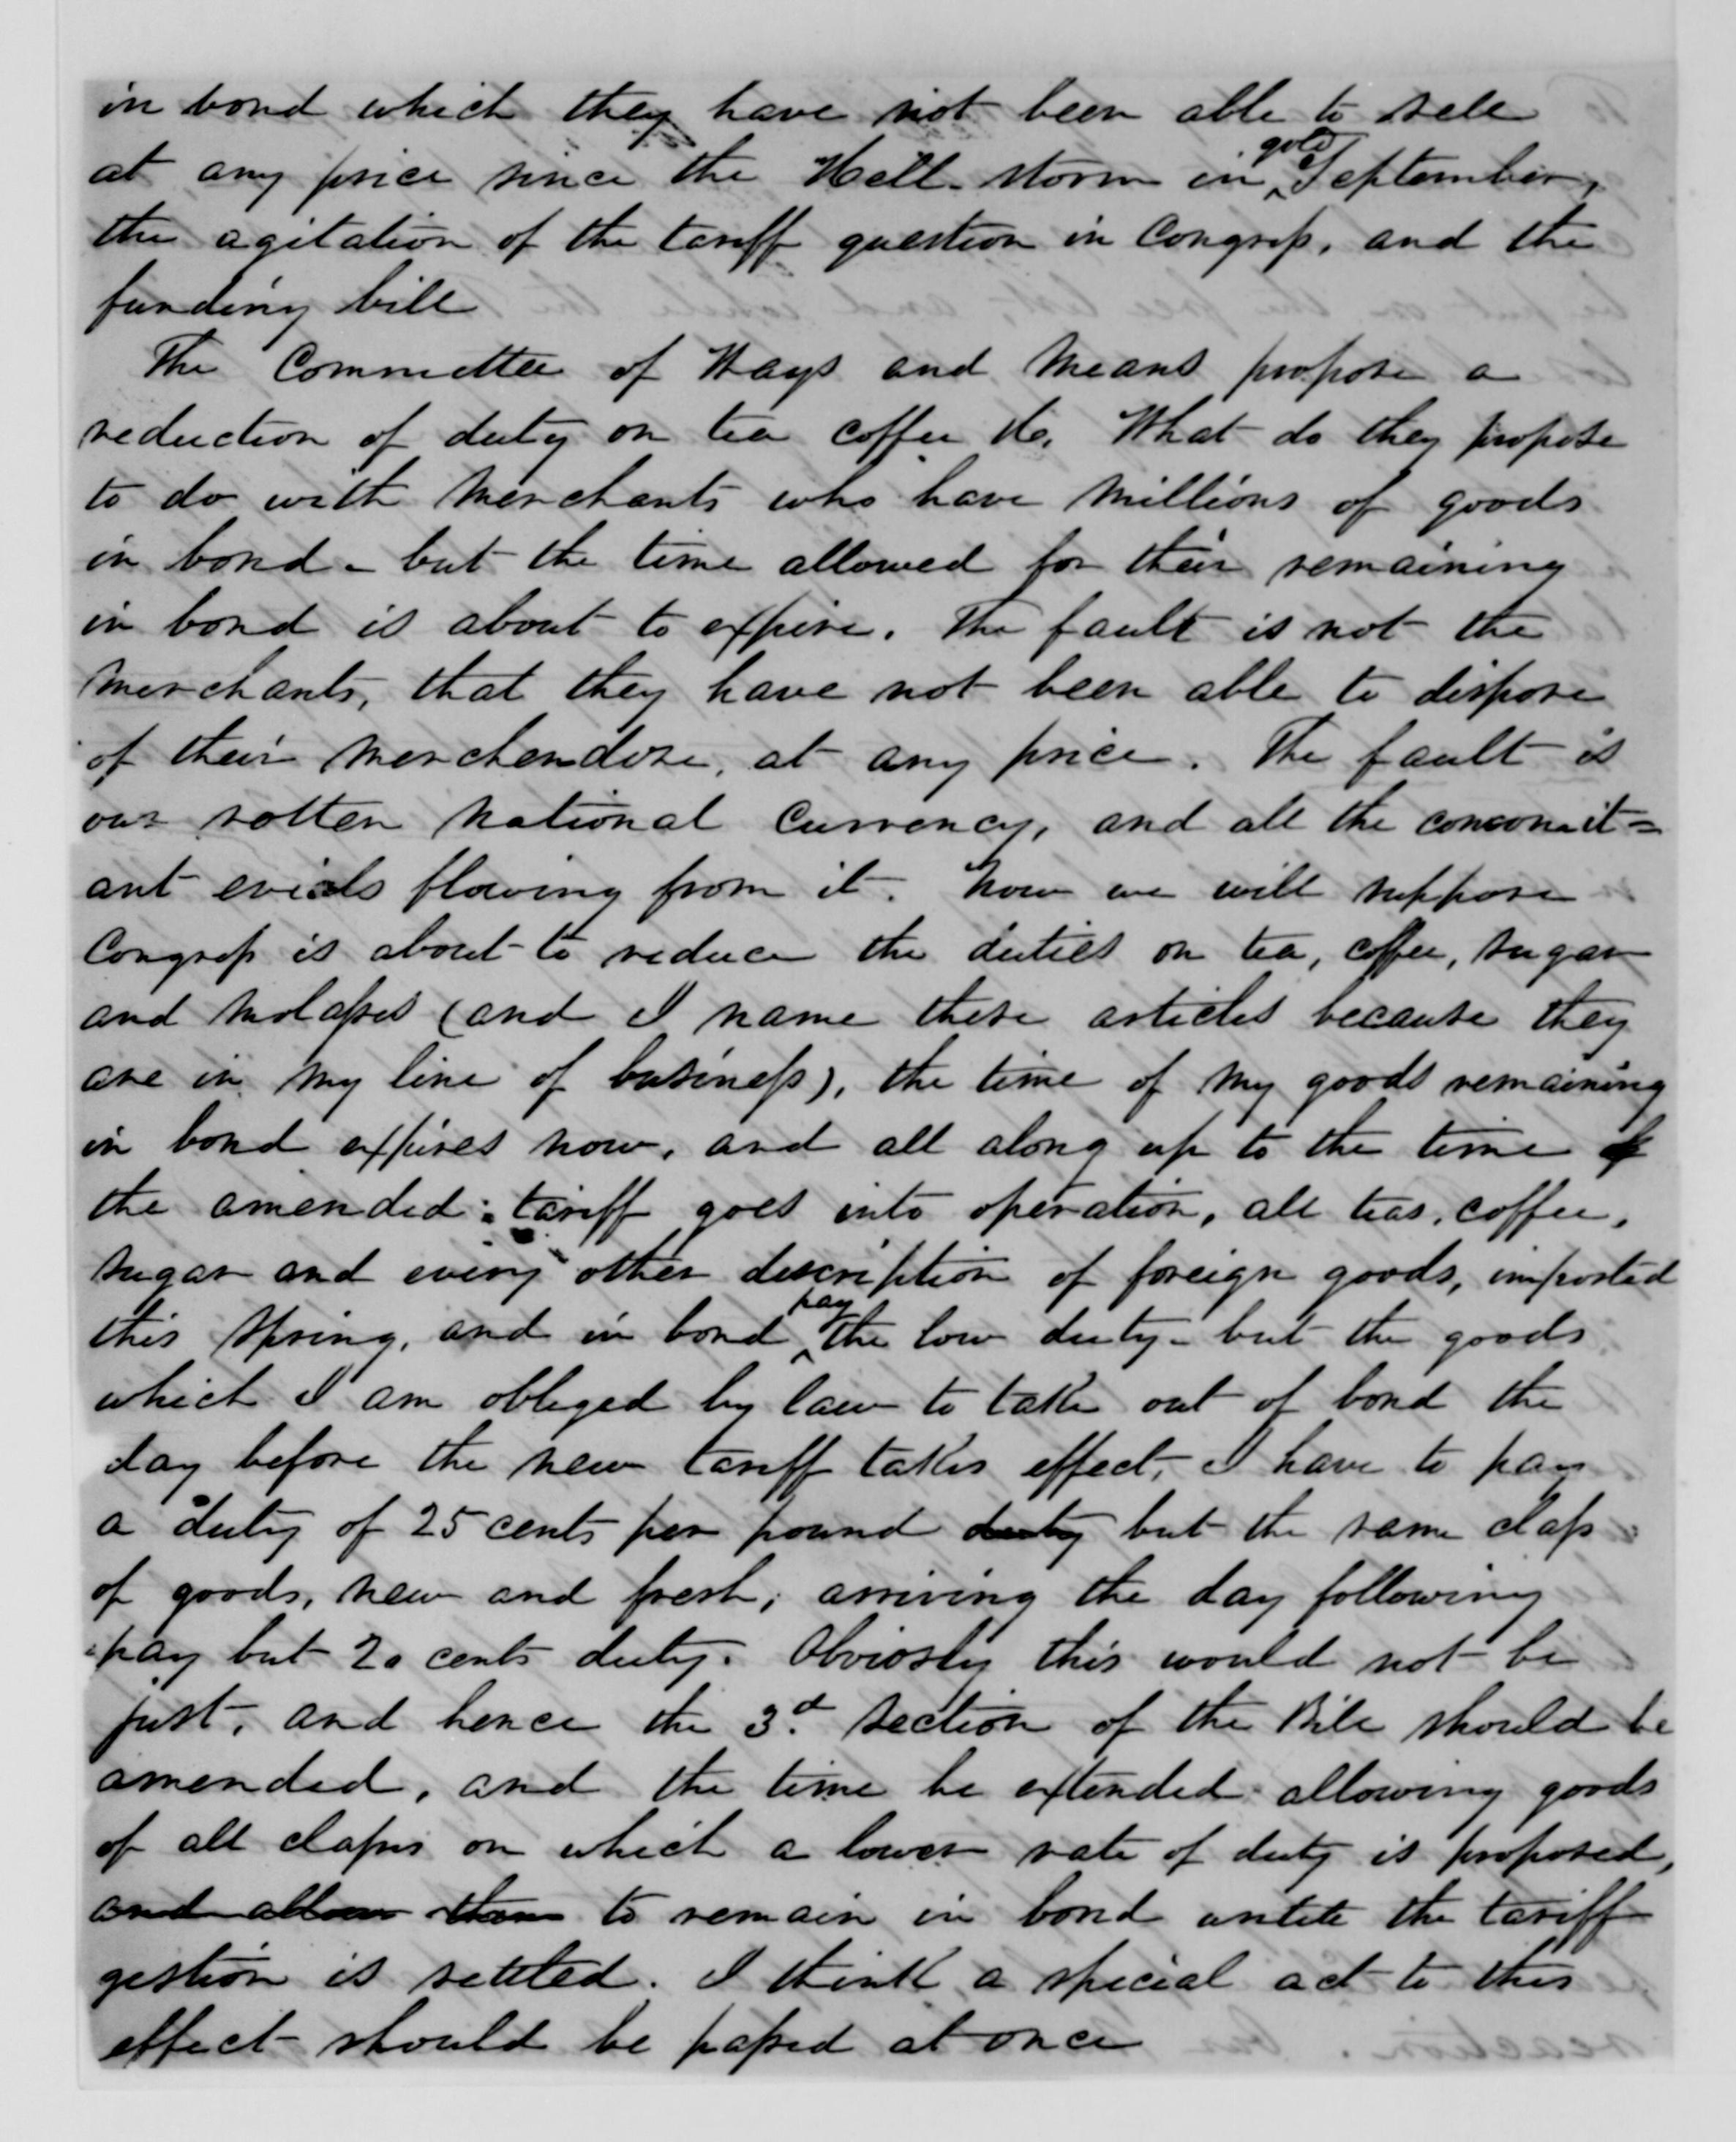 in bond which they have not been able to sell
at any price since the Hell-storm in gold September,
the agitation of the tariff question in Congress, and the
funding bill
The Committee of Ways and Means propose a
reduction of duty on tea coffee &c. What do they propose
to do with Merchants who have Millions of goods
in bond - but the time allowed for their remaining
in bond is about to expire. The fault is not the
Merchants, that they have not been able to dispose
of their Merchendise, at any price. The fault is
our rotten National Currency, and all the concomit=
ant evials flowing from it. Now we will suppose
Congress is about to reduce the duties on tea, coffee, sugar
and Molasses (and I name these articles because they
are in my line of business), the time of my goods remaining
in bond expires now, and all along up to the time of
the amended tariff goes into operation, all teas, coffee,
sugar and every other description of foreign goods, imported
this Spring, and in bond pay the low duty - but the goods
which I am obliged by law to take out of bond the
day before the new tariff takes effect, I have to pay
a duty of 25 cents per pound duty but the same class
of goods, new and fresh, arriving the day following
pay but 20 cents duty. Obviosly this would not be
just, and hence the 3d. section of the Bill should be
amended, and the time be extended allowing goods
of all classes on which a lower rate of duty is proposed,
and allow them to remain in bond untill the tariff
qestion is settled. I think a special act to this
effect should be passed at once